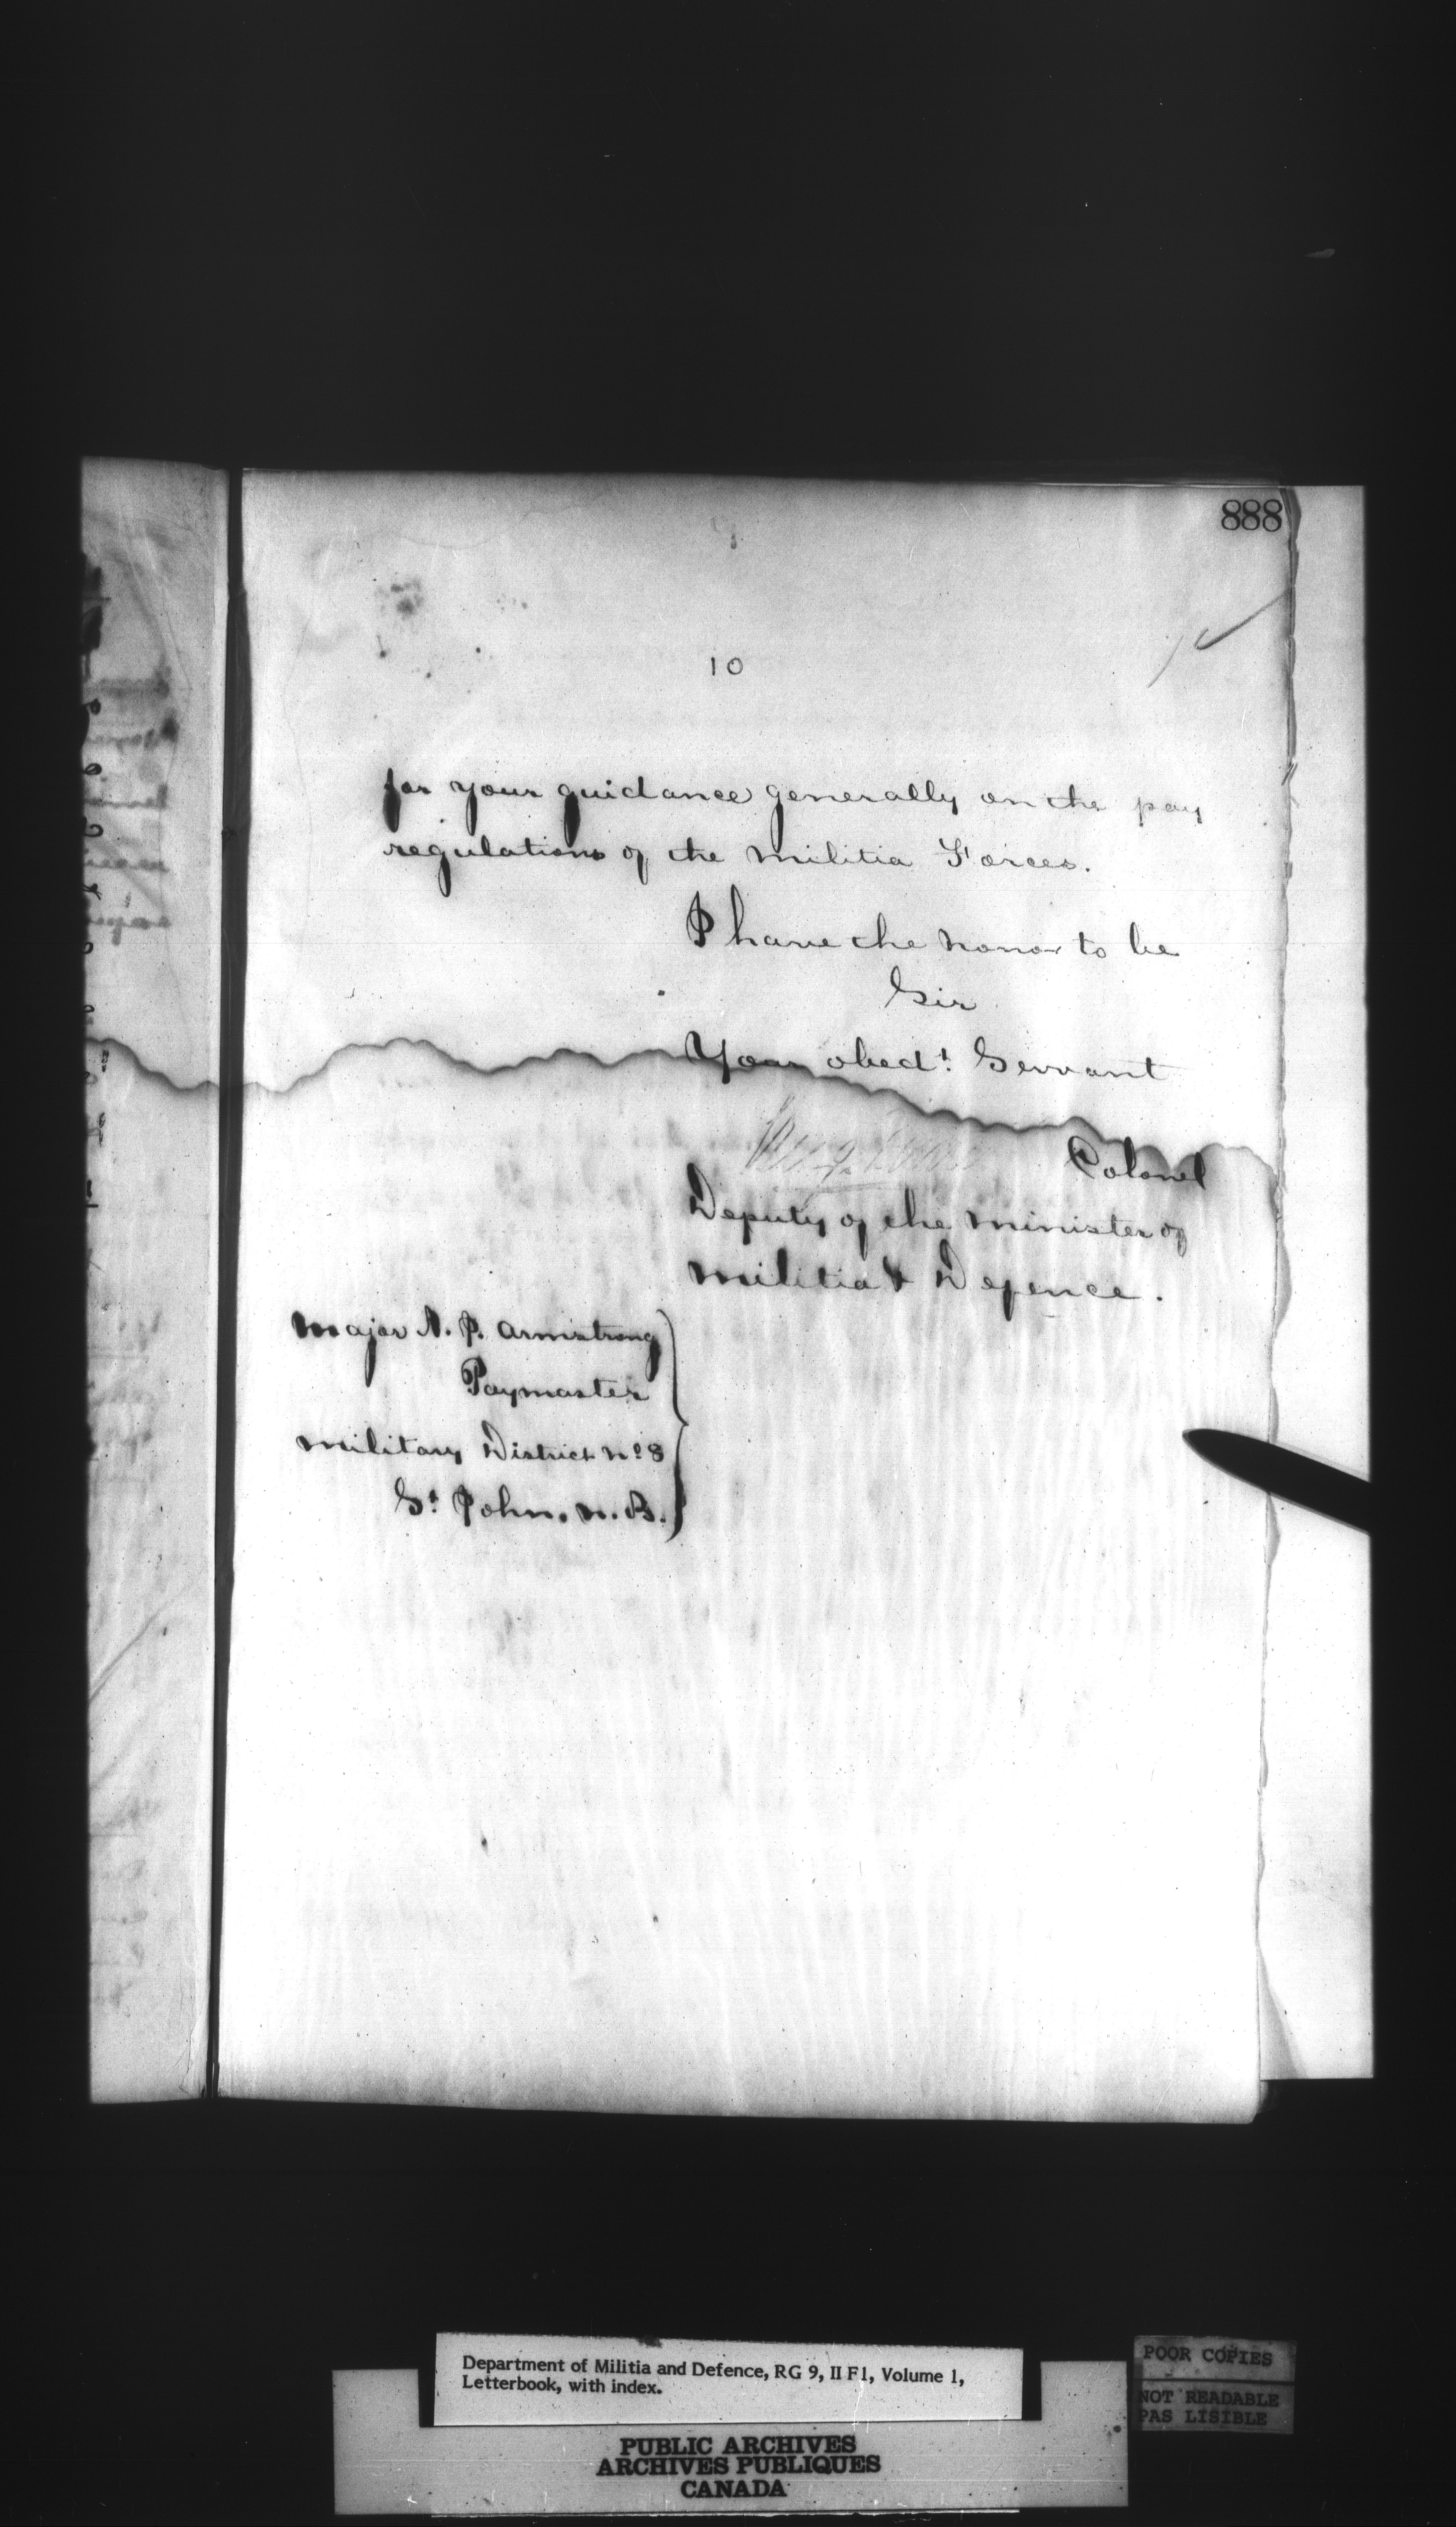 888
10
for your guidance generally on the pay
regulations of the Militia Forces.
I have the honor to be
Sir
Your obedt. Servant
Colonel
Deputy of the Minister of
Militia & Defence.
Major A. J. Armstrong
Paymaster
Military District No 8
St John. N.B.
Department of Militia and Defence, RG 9, II F1, Volume 1,
Letterbook, with index.
PUBLIC ARCHIVES
ARCHIVES PUBLIQUES
CANADA
POOR COPIES
NOT READABLE
PAS LISIBLE